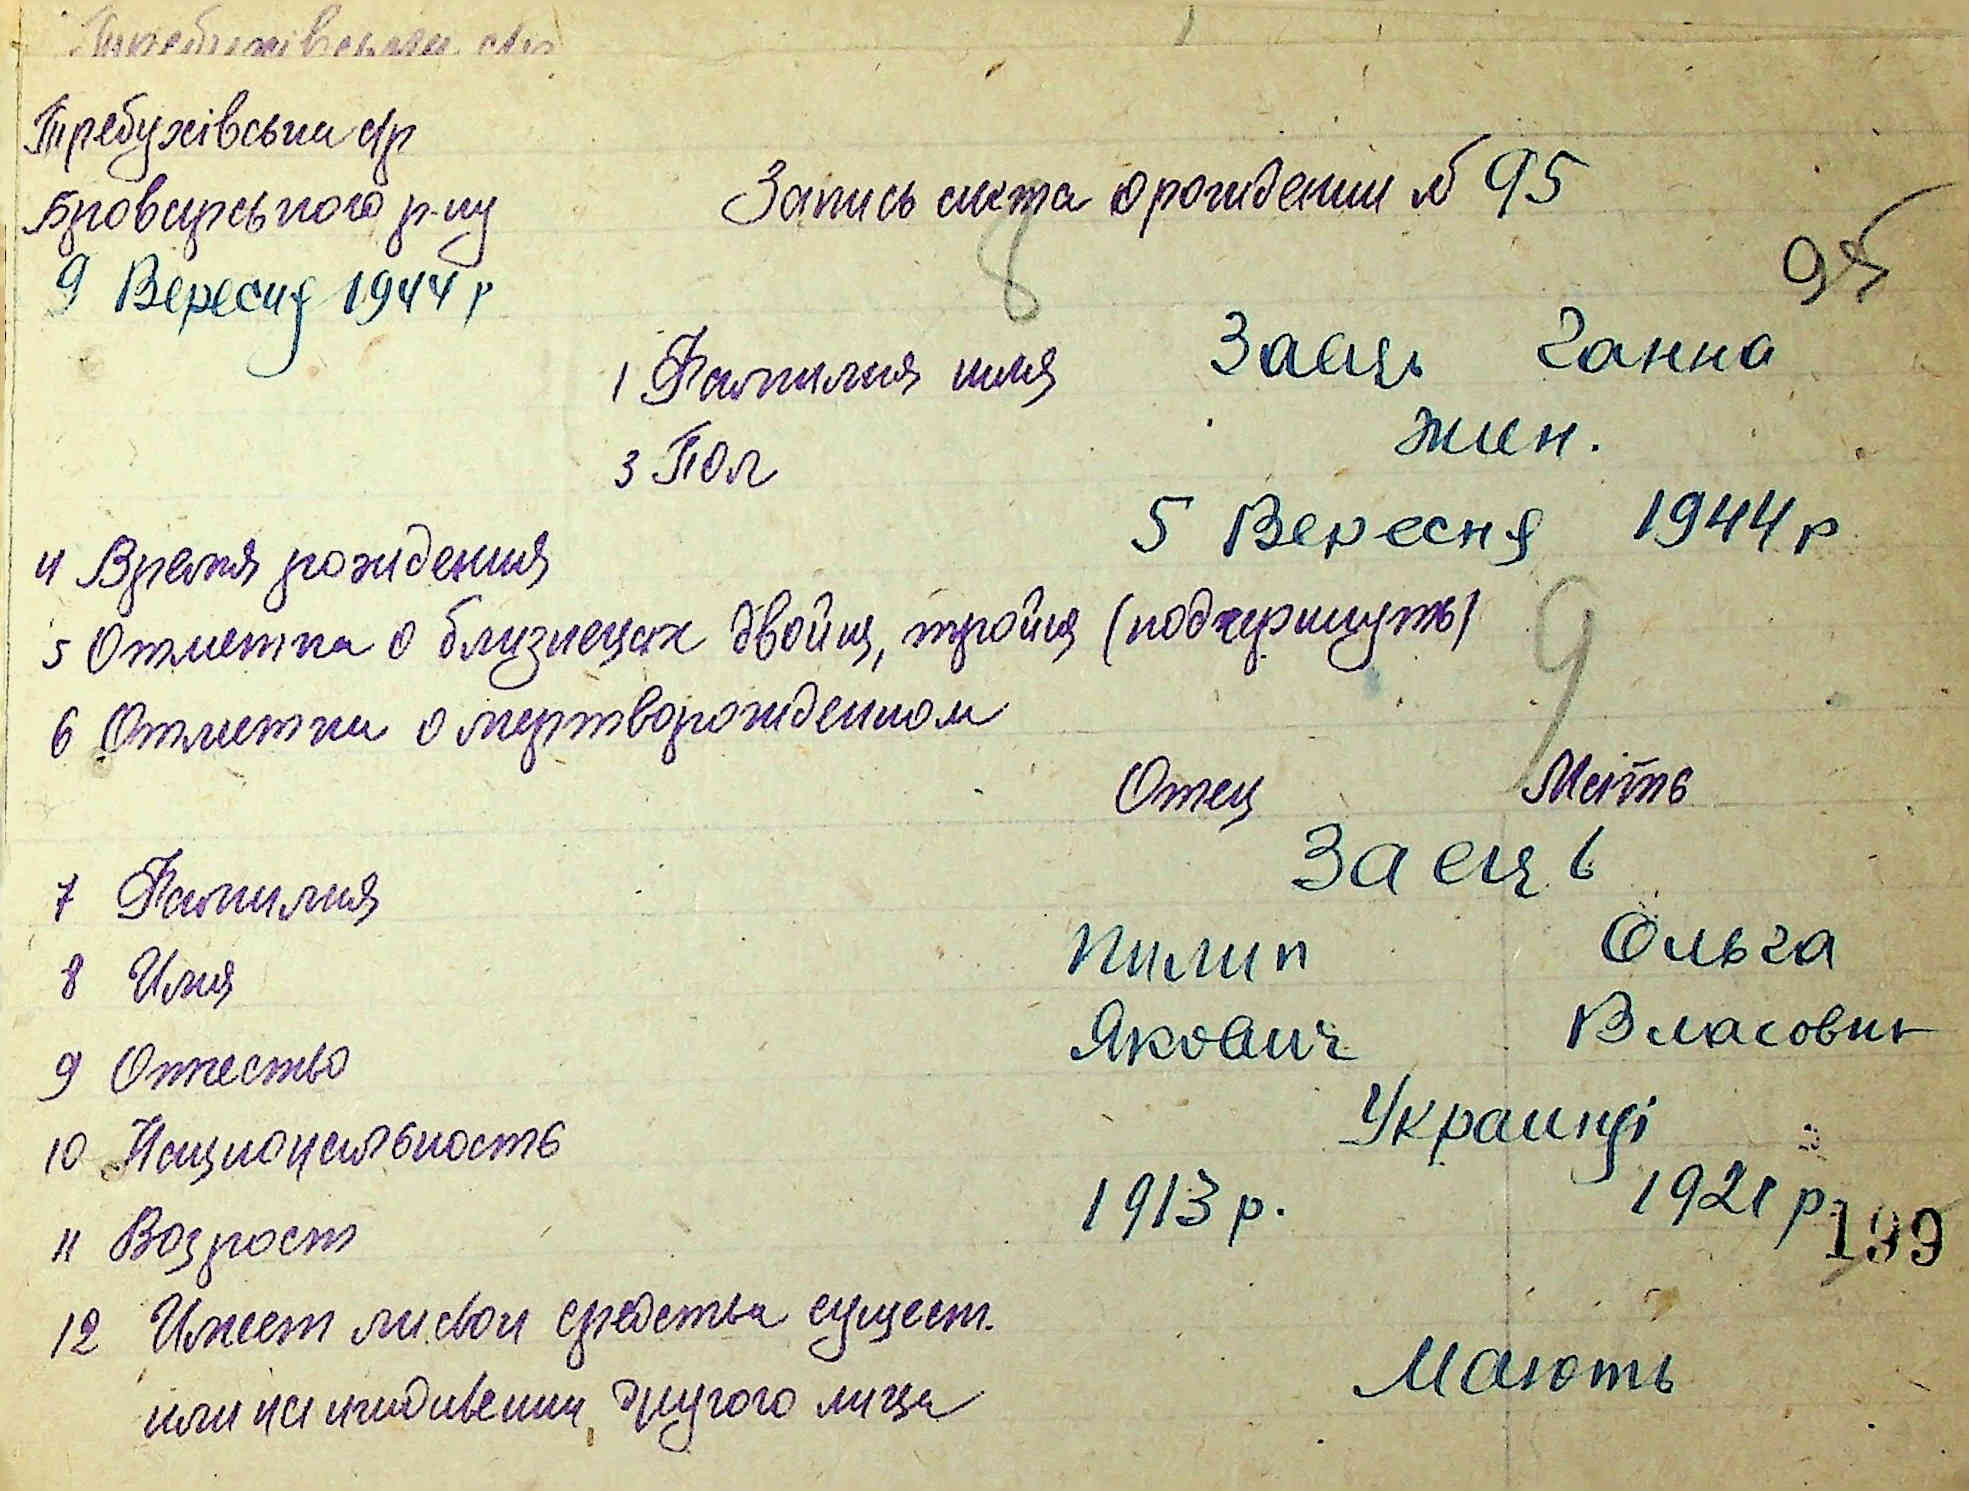 Требухівська с/р
Броварського р-ну
Запись акта о рождении № 95
95
9 Вересня 1944 р
1 Фамилия имя Заець Ганна
3 Пол жен.
4 Время рождения 5 Вересня 1944 р
5 Отметка о близнецах двойня, тройня (подчеркнуть)
6 Отметка о мертворожденном
Отец Мать
7 Фамилия Заець
8 Имя Пилип Ольга
9 Отчество Якович Власовн
10 Национальность Украинці
11 Возрост 1913 р. 1921 р.
199
12 Имеет ли свои средства сущест.
или на иждивении другого лица Мають